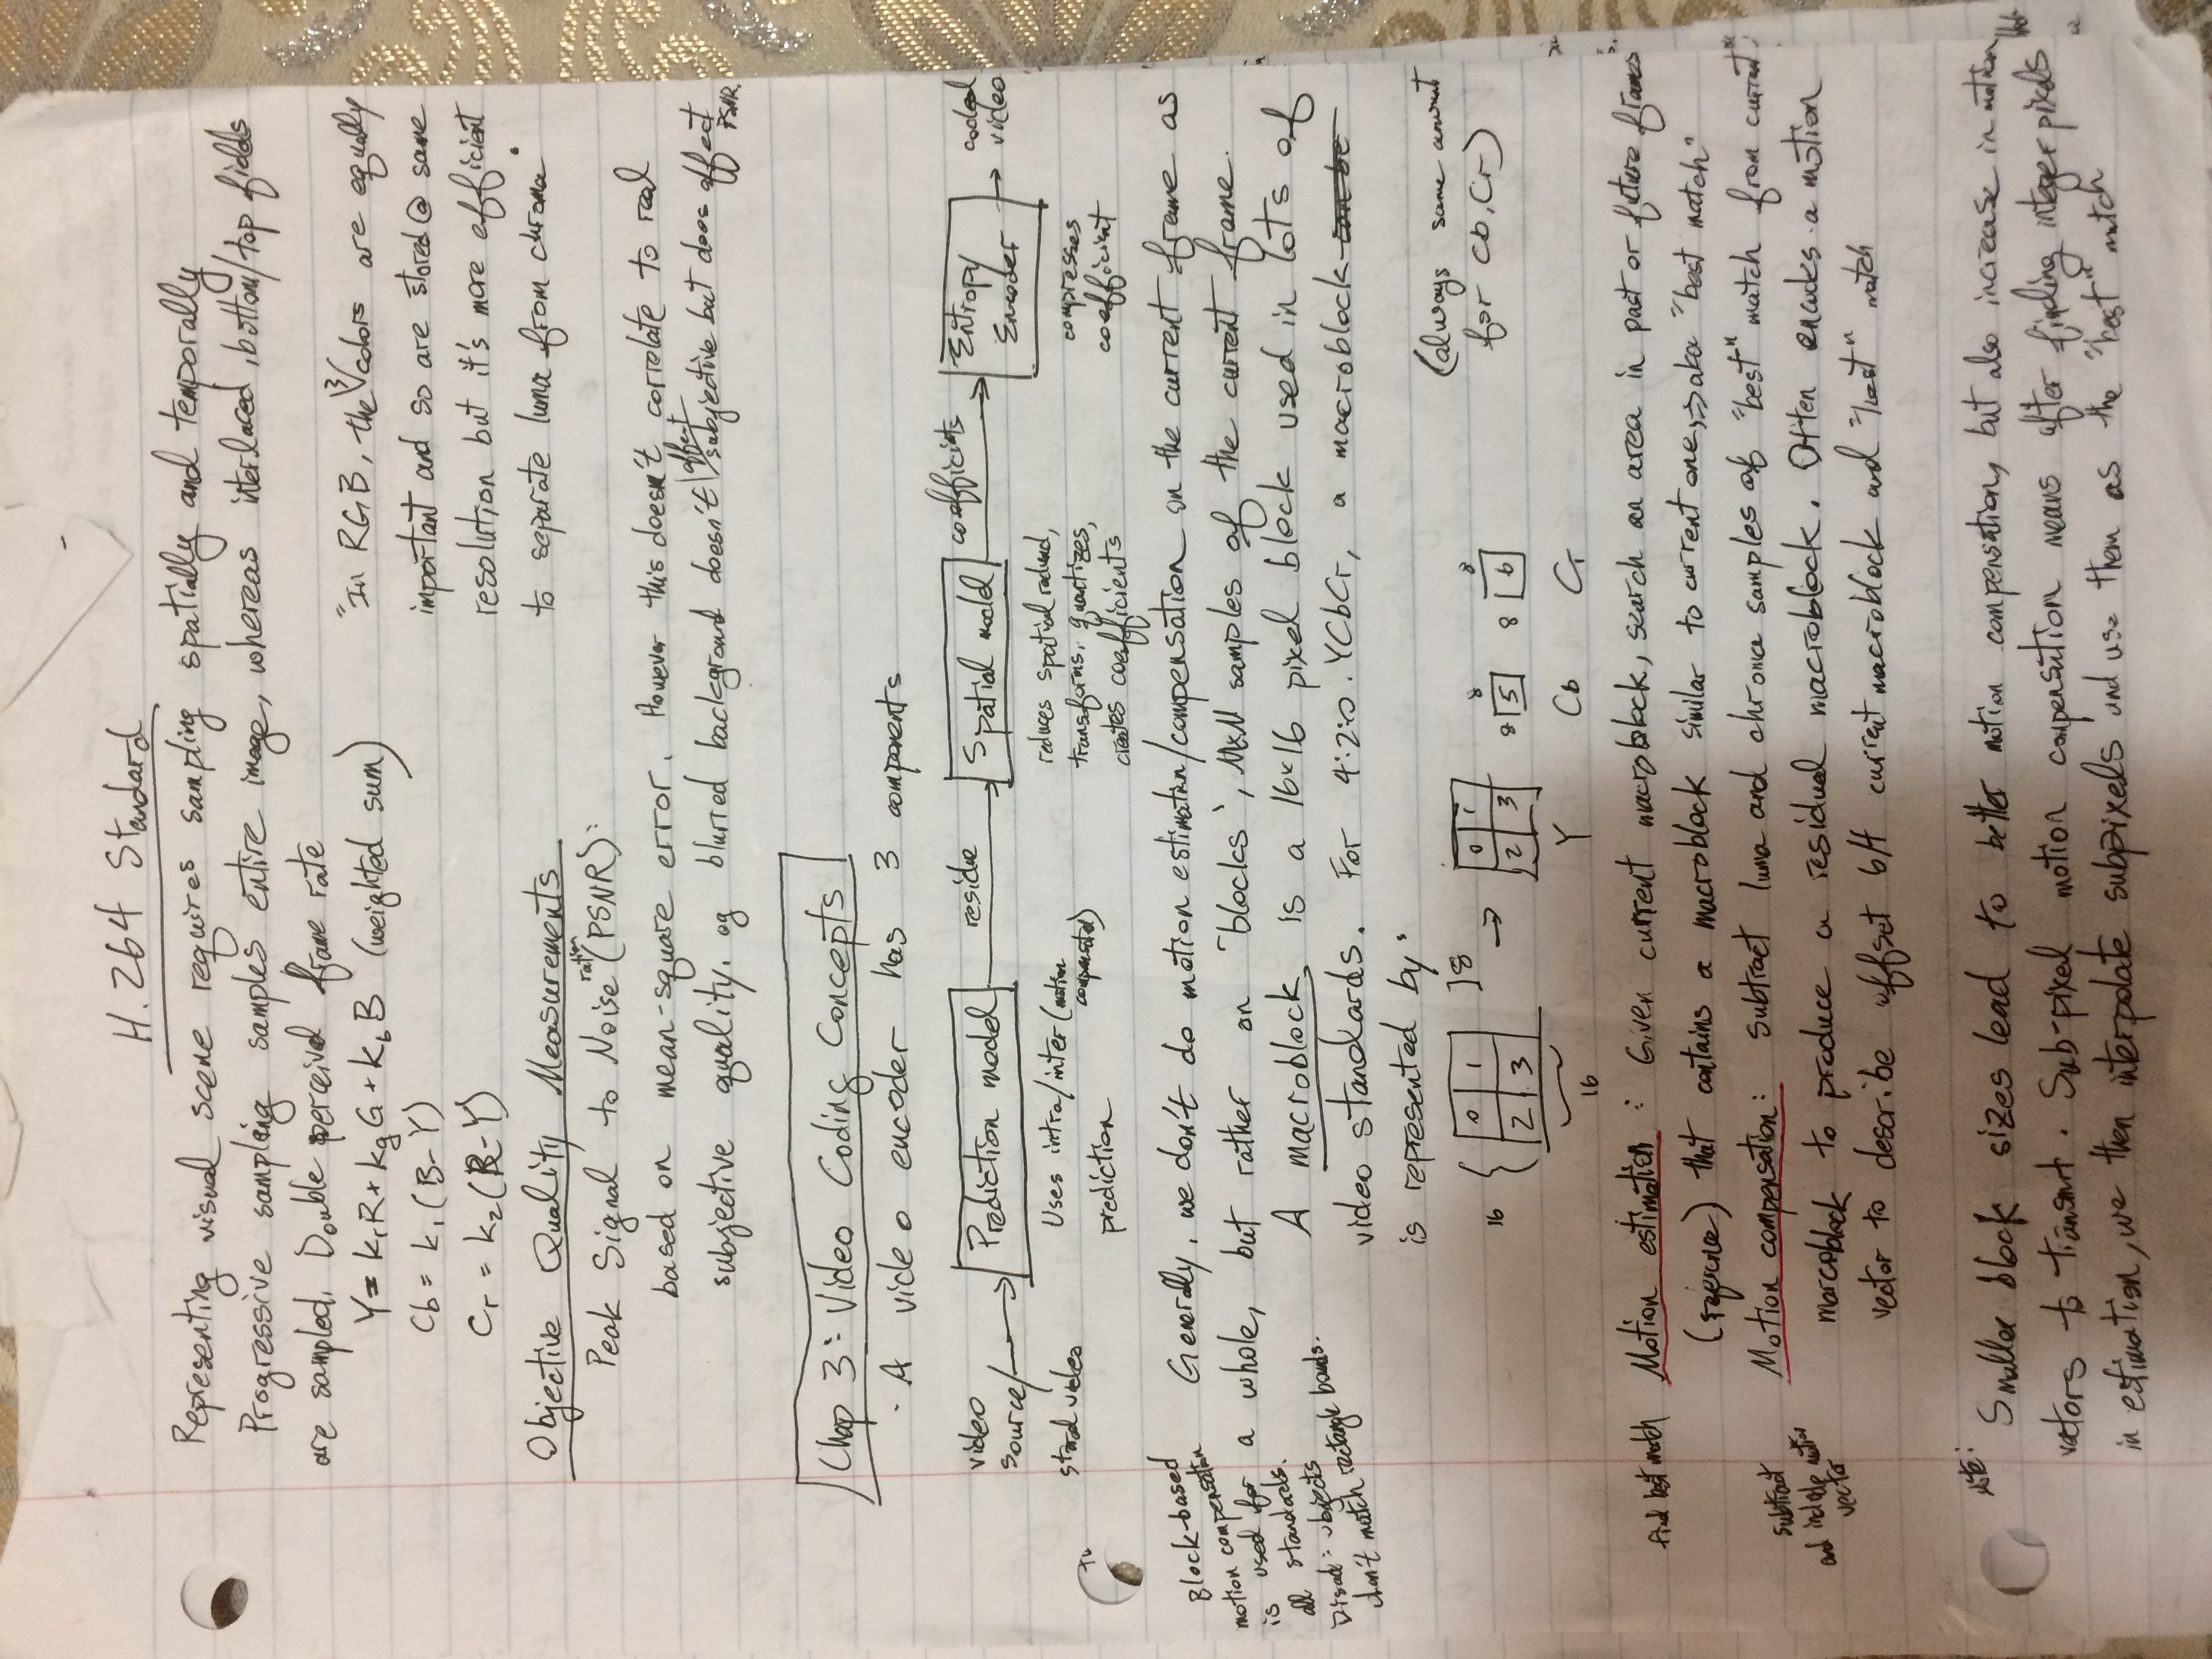 H.264 Standard
Representing visual scene requires sampling spatially and temporally
Progressive sampling samples entire image, whereas interlaced, bottom/top fields
are sampled. Double perceived frame rate
Y = krR + kgG + kbB (weighted sum)
Cb = k1(B-Y)
Cr = k2(R-Y)
"In RGB, the 3 colors are equally
important and so are stored @ same
resolution but it's more efficient
to separate luma from chroma"
Objective Quality Measurements
Peak Signal to Noise ration (PSNR):
based on mean-square error. However this doesn't correlate to real
subjective quality. eg blurred background doesn't affect subjective but does affect
PSNR.
Chap 3: Video Coding Concepts
· A video encoder has 3 components
video
source/
stored video
Prediction model
Uses intra/inter (motion
compensated)
prediction
residue
Spatial model
reduces spatial redund,
transforms, quantizes,
creates coefficients
coefficients
Entropy
Encoder
compresses
coefficient
coded
video
Block-based
motion compensation
is used for
all standards.
Disad: objects
don't match rectangle bounds.
Generally, we don't do motion estimation/compensation on the current frame as
a whole, but rather on 'blocks', MxN samples of the current frame.
A macroblock is a 16x16 pixel block used in lots of
video standards. For 4:2:0 YCbCr, a macroblock can be
is represented by:
16 { 0 1 ]8 → 0 1 8 8
2 3 2 3 8 5 8 6
16 Y Cb Cr
(always same amount
for Cb, Cr)
find best match
Motion estimation: Given current macroblock, search an area in past or future frames
(reference) that contains a macroblock similar to current one, => aka "best match"
subtract
and include motion
vector
Motion compensation: Subtract luma and chroma samples of "best" match from current
marcoblock to produce a residual macroblock. Often encodes a motion
vector to describe offset b/t current macroblock and "best" match
Note:
Smaller block sizes lead to better motion compensation, but also increase in motion
vectors to transmit. Sub-pixel motion compensation means after finding integer pixels
in estimation, we then interpolate subpixels and use them as the "best" match